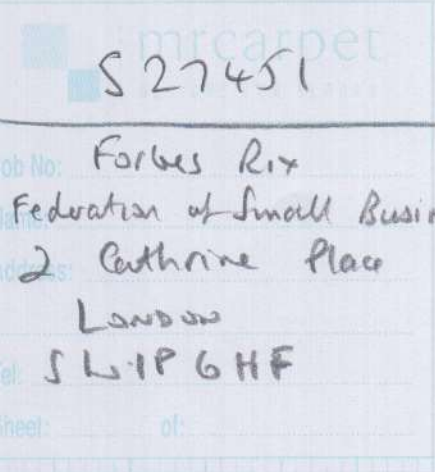 mrcarpet
S27451
Job No: Forbes Rix
Name: Federation of Small Busin
Address: 2 Cathrine Place
London
Tel: SW1P 6HF
Sheet: of: